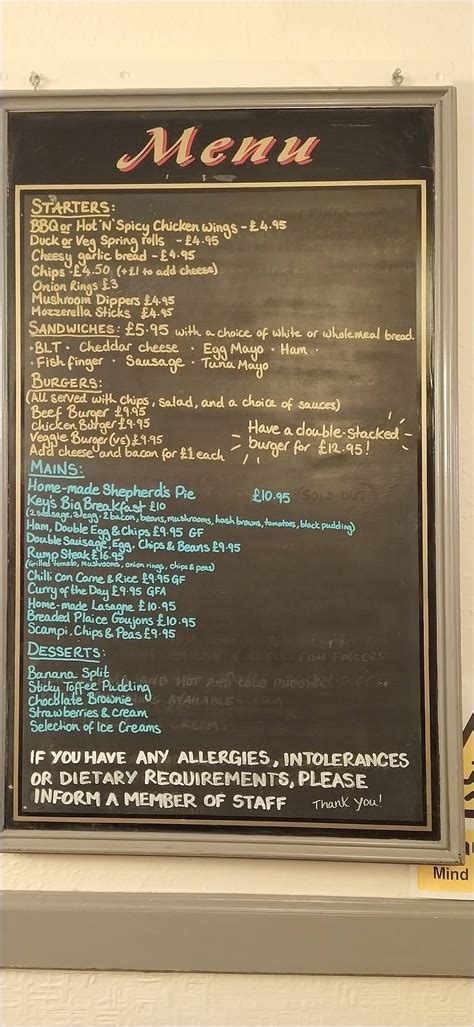 Menu
STARTERS:
BBQ or Hot 'N' Spicy Chicken wings - £4.95
Duck or Veg Spring rolls - £4.95
Cheesy garlic bread - £4.95
Chips - £4.50 (+£1 to add cheese)
Onion Rings £3
Mushroom Dippers £4.95
Mozzerella Sticks £4.95
SANDWICHES: £5.95 with a choice of white or wholemeal bread.
· BLT · Cheddar cheese · Egg Mayo · Ham ·
· Fish finger · Sausage · Tuna Mayo
BURGERS:
(All served with chips, salad, and a choice of sauces)
Beef Burger £9.95
Chicken Burger £9.95
Veggie Burger (vs) £9.95
Add cheese and bacon for £1 each
Have a double-stacked
burger for £12.95!
MAINS:
Home-made Shepherd's Pie £10.95 (SOLD OUT)
Key's Big Breakfast £10
(2 sausage, 2 egg, 2 bacon, beans, mushrooms, hash browns, tomatoes, black pudding)
Ham, Double Egg & Chips £9.95 GF
Double Sausage, Egg, Chips & Beans £9.95
Rump Steak £16.95
(Grilled tomato, mushrooms, onion rings, chips & peas)
Chilli Con Carne & Rice £9.95 GF
Curry of the Day £9.95 GFA
Home-made Lasagne £10.95
Breaded Plaice Goujons £10.95
Scampi, Chips & Peas £9.95
DESSERTS:
Banana Split
Sticky Toffee Pudding
Chocolate Brownie
Strawberries & cream
Selection of Ice Creams
IF YOU HAVE ANY ALLERGIES, INTOLERANCES
OR DIETARY REQUIREMENTS, PLEASE
INFORM A MEMBER OF STAFF Thank you!
Mind